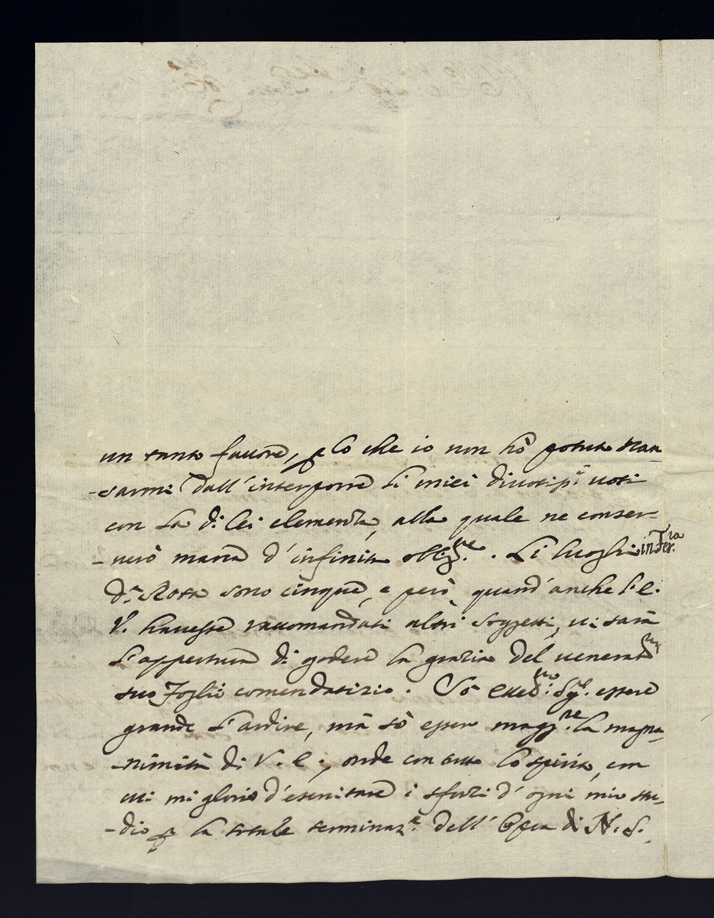 un tanto favore, p lo che io non hò potuto stan-
-carmi dall'interporre li miei divotisi voti
con la di lei clemenza, alla quale ne conser-
-verò marca d'infinite obligne. Li luoghi in Ferra
di Rota sono cinque, e però quand'anche l'E.
V. havesse raccomandati altri Soggetti, vi sarà
l'appertura di godere la grazia del venerato
suo Foglio comendatizio. Sò essere
grande l'ardire, mà sò esser maggre la magna-
-nimità di V. E., onde con tutto lo spirito, con
cui mi glorio d'esercitare i sforzi d'ogni mio stu-
-dio p la totale terminaze dell'Opera di N. S.